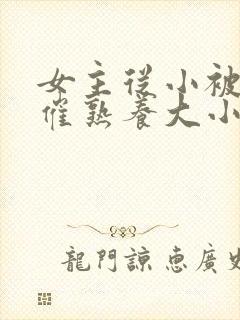 女主從小被
催熟養大小
龍門諒惠廣